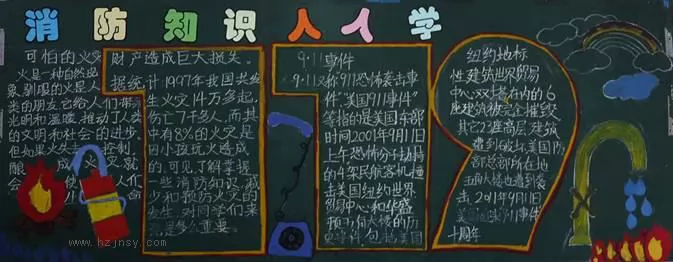 消防知识人人学
可怕的火灾
火是一种自然现
象,驯服的火是人
类的朋友,它给人们带
光明和温暖,推动了人类
的文明和社会的进步。
但如果火失去控制,
酿成火灾就
会 使 人们
财产造成巨大损失。
据统计1997年我国共发
生火灾14万多起,
伤亡7千多人,而其
中有8%的火灾是
由小孩玩火造成
的。可见,了解掌握
一些消防知识,减
少和预防火灾的
发生,对同学们来
说是多么重要。
9·11事件
9·11又称911恐怖袭击事
件“美国911事件”
等指的是美国东部
时间2001年9月11日
上午恐怖分子劫持
的4架民航客机撞
击美国纽约世界
贸易中心和华盛
顿五角大楼的历
史事件,包括美国
纽约地标
性建筑世界贸易
中心双塔在内的6
座建筑被完全摧毁,
其它23座高层建筑
遭到破坏,美国国防
部总部所在地
五角大楼也遭到袭
击,2011年9月11日
美国 9·11事件
十周年
www.hzjnsy.com